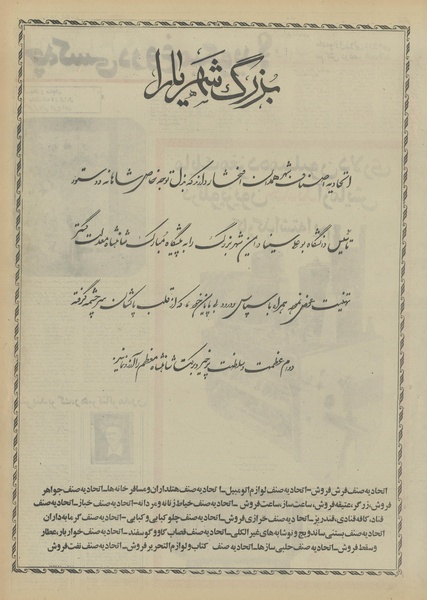 بزرگ شهریارا
اتحادیه اصناف شهر همدان افتخار دارد که بذل توجه خاص شاهانه و دستور
تأسیس دانشگاه بوعلی سینا در این شهر بزرگ را به پیشگاه مبارک شاهنشاه عدالت گستر
تهنیت عرض نموده همراه با سپاس و درود بی پایان خود، که از قلب پاکشان سرچشمه گرفته
دوام عظمت و سلطنت پرخیر و برکت شاهنشاه معظم را آرزو نمایند.
اتحادیه صنف فرش فروش - اتحادیه صنف لوازم اتومبیل - اتحادیه صنف هتلداران و مسافرخانه ها - اتحادیه صنف جواهر
فروش، زرگر، عتیقه فروش، ساعت ساز، ساعت فروش - اتحادیه صنف خیاط زنانه و مردانه - اتحادیه صنف خباز - اتحادیه صنف
قناد، کافه قنادی، قندریز - اتحادیه صنف خرازی فروش - اتحادیه صنف چلوکبابی و کبابی - اتحادیه صنف گرمابه داران
اتحادیه صنف بستنی ساندویچ و نوشابه های غیر الکلی - اتحادیه صنف قصاب گاو و گوسفند - اتحادیه صنف خواربار، عطار
و سقط فروش - اتحادیه صنف حلبی سازها - اتحادیه صنف کتاب و لوازم التحریر فروش - اتحادیه صنف نفت فروش